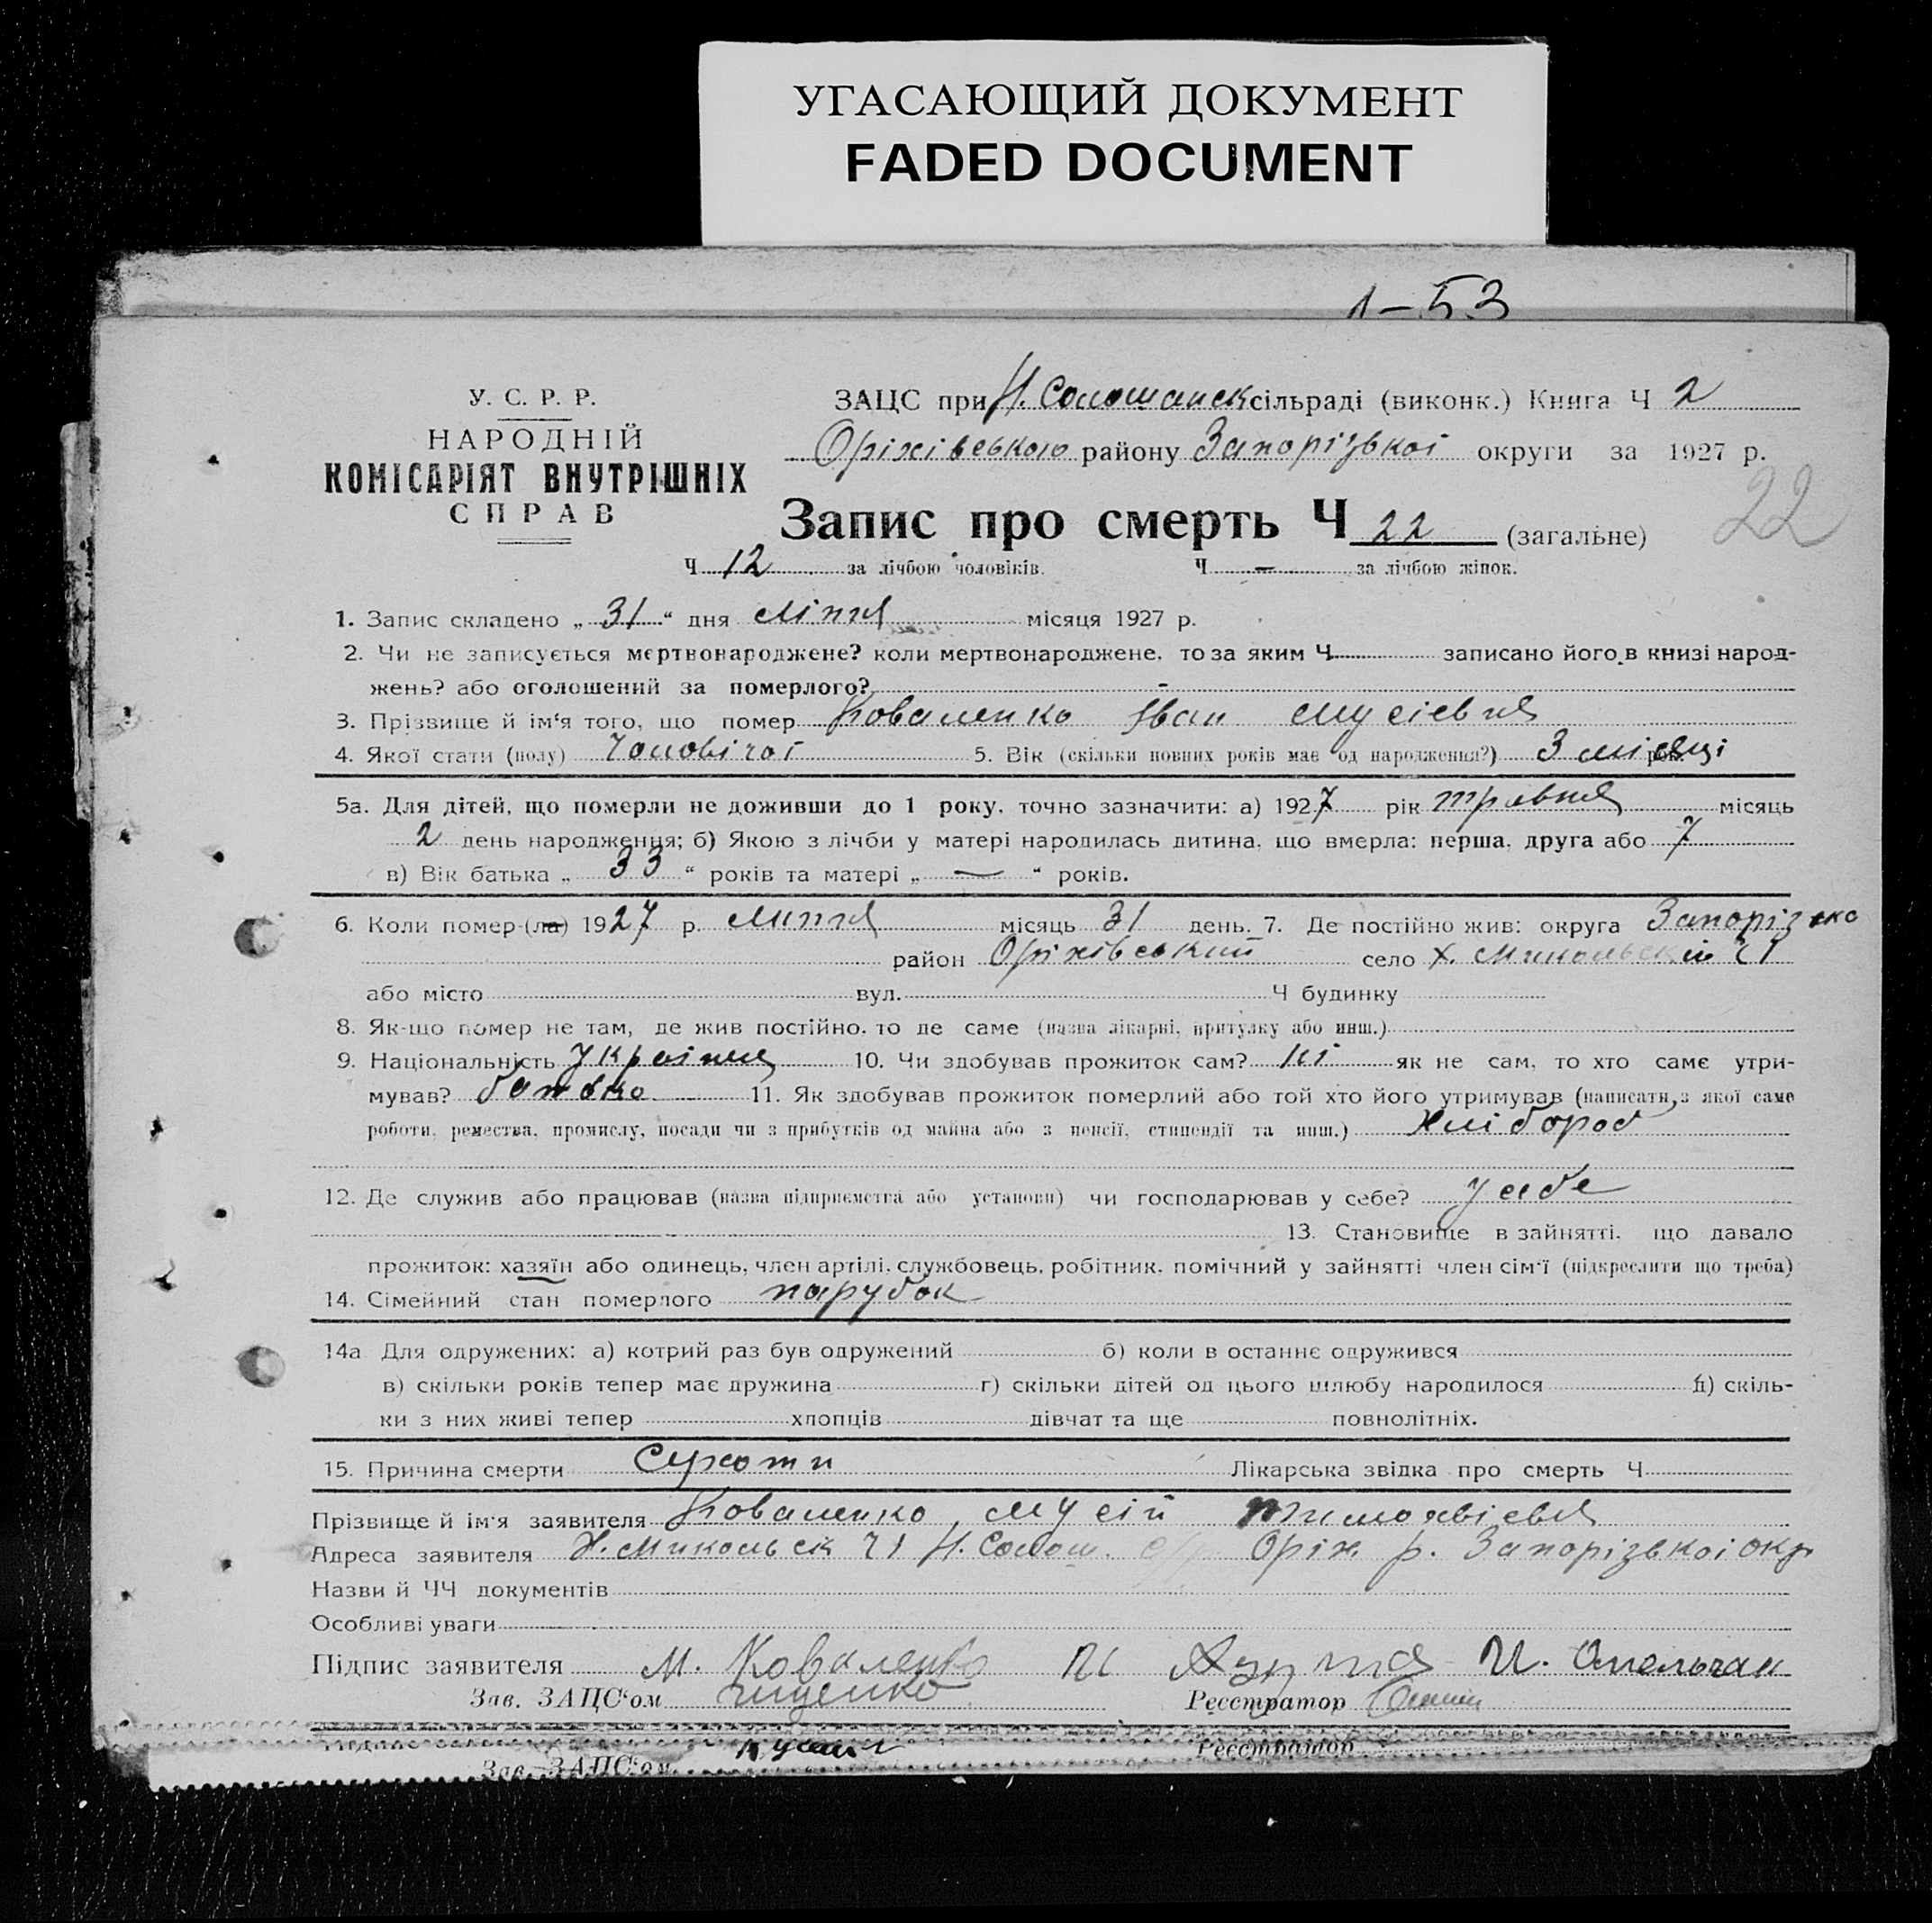 УГАСАЮЩИЙ ДОКУМЕНТ
FADED DOCUMENT
1-53
У. С. Р. Р.
НАРОДНІЙ
КОМІСАРІЯТ ВНУТРІШНІХ
СПРАВ
ЗАЦС при Н. Солошанск сільраді (виконк.) Книга Ч 2
Оріхівського району Запорізької округи за 1927 р.
22
Запис про смерть Ч 22 (загальне)
Ч 12 за лічбою чоловіків. Ч — за лічбою жінок.
1. Запис складено „ 31 “ дня Ліпня місяця 1927 р.
2. Чи не записується мертвонароджене? коли мертвонароджене, то за яким Ч записано його в книзі народ-
жень? або оголошений за померлого? -
3. Прізвище й ім‘я того, що помер Коваленко Іван Мусієвич
4. Якої стати (полу) Чоловічої 5. Вік (скільки повних років має од народження?) 3 місяці рок.
5а. Для дітей, що померли не доживши до 1 року, точно зазначити: а) 1927 рік травня місяць
2 день народження; б) Якою з лічби у матері народилась дитина, що вмерла: перша, друга або 7
в) Вік батька „ 33 “ років та матері „ — “ років.
6. Коли помер (ла) 1927 р. Липня місяць 31 день. 7. Де постійно жив: округа Запорізька
район Оріхівський село Х. Микольский Ч1
або місто вул. Ч будинку
8. Як-що помер не там, де жив постійно, то де саме (назва лікарні, притулку або инш.)
9. Національність Україня 10. Чи здобував прожиток сам? Ні як не сам, то хто саме утри-
мував? батько 11. Як здобував прожиток померлий або той хто його утримував (написати, з якої саме
роботи, ремества, промислу, посади чи з прибутків од майна або з пенсії, стипендії та инш.) Хлібороб
12. Де служив або працював (назва підприємства або установи) чи господарював у себе? у себе
13. Становище в зайнятті, що давало
прожиток: хазяїн або одинець, член артілі, службовець, робітник, помічний у зайнятті член сім‘ї (підкреслити що треба)
14. Сімейний стан померлого парубок
14а Для одружених: а) котрий раз був одружений б) коли в останнє одружився
в) скільки років тепер має дружина г) скільки дітей од цього шлюбу народилося д) скіль-
ки з них живі тепер хлопців дівчат та ще повнолітніх.
15. Причина смерти Сухоти Лікарська звідка про смерть Ч
Прізвище й ім‘я заявителя Коваленко Мусій Тимохвієвич
Адреса заявителя Х. Микольск Ч1 Н. Солош. Оріх р. Запорізької окр
Назви й ЧЧ документів
Особливі уваги
Підпис заявителя М. Коваленко
Зав. ЗАЦС‘ом Реєстратор
Реєстратор
Зав. ЗАЦС‘ом